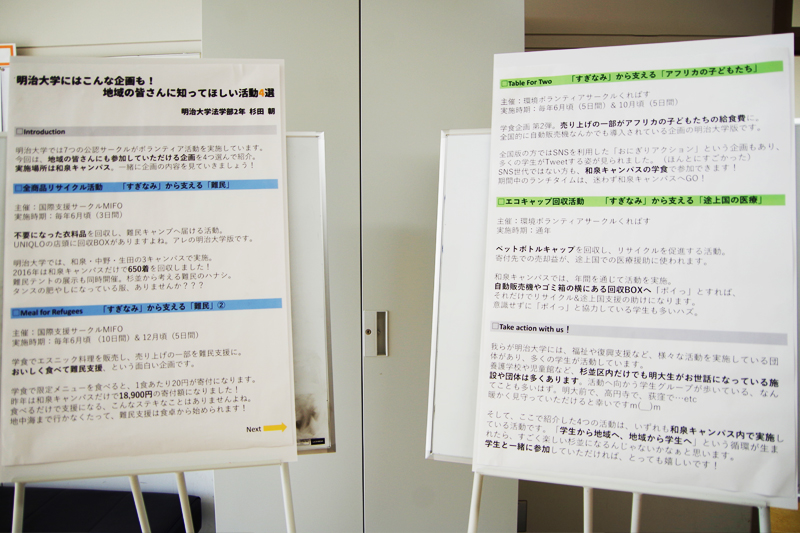 明治大学にはこんな企画も！
地域の皆さんに知ってほしい活動4選
明治大学法学部2年　杉田 朝
□Introduction
明治大学では7つの公認サークルがボランティア活動を実施しています。
今回は、地域の皆さんにも参加していただける企画を4つ選んで紹介。
実施場所は和泉キャンパス。一緒に企画の内容を見ていきましょう！
□全商品リサイクル活動　「すぎなみ」から支える「難民」
主催：国際支援サークルMIFO
実施時期：毎年6月頃（3日間）
不要になった衣料品を回収し、難民キャンプへ届ける活動。
UNIQLOの店頭に回収BOXがありますよね。アレの明治大学版です。
明治大学では、和泉・中野・生田の3キャンパスで実施。
2016年は和泉キャンパスだけで650着を回収しました！
難民テントの展示も同時開催。杉並から考える難民のハナシ。
タンスの肥やしになっている服、ありませんか？？？
□Meal for Refugees　「すぎなみ」から支える「難民」②
主催：国際支援サークルMIFO
実施時期：毎年6月頃（10日間）＆12月頃（5日間）
学食でエスニック料理を販売し、売り上げの一部を難民支援に。
おいしく食べて難民支援、という面白い企画です。
学食で限定メニューを食べると、1食あたり20円が寄付になります。
昨年は和泉キャンパスだけで18,900円の寄付額になりました！
食べるだけで支援になる、こんなステキなことはありませんよね。
地中海まで行かなくたって、難民支援は食卓から始められます！
Next
□Table For Two　「すぎなみ」から支える「アフリカの子どもたち」
主催：環境ボランティアサークルくればす
実施時期：毎年6月頃（5日間）＆10月頃（5日間）
学食企画 第2弾。売り上げの一部がアフリカの子どもたちの給食費に。
全国的に自動販売機なんかでも導入されている企画の明治大学版です。
全国版の方ではSNSを利用した「おにぎりアクション」という企画もあり、
多くの学生がTweetする姿が見られました。（ほんとにすごかった）
SNS世代ではない方も、和泉キャンパスの学食で参加できます！
期間中のランチタイムは、迷わず和泉キャンパスへGO！
□エコキャップ回収活動　「すぎなみ」から支える「途上国の医療」
主催：環境ボランティアサークルくればす
実施時期：通年
ペットボトルキャップを回収し、リサイクルを促進する活動。
寄付先での売却益が、途上国での医療援助に使われます。
和泉キャンパスでは、年間を通じて活動を実施。
自動販売機やゴミ箱の横にある回収BOXへ「ポイっ」とすれば、
それだけでリサイクル＆途上国支援の助けになります。
意識せずに「ポイっ」と協力している学生も多いハズ。
□Take action with us！
我らが明治大学には、福祉や復興支援など、様々な活動を実施している団
体があり、多くの学生が活動しています。
養護学校や児童館など、杉並区内だけでも明大生がお世話になっている施
設や団体は多くあります。活動へ向かう学生グループが歩いている、なん
てことも多いはず。明大前で、高円寺で、荻窪で…etc
暖かく見守っていただけると幸いですm(__)m
そして、ここで紹介した4つの活動は、いずれも和泉キャンパス内で実施し
ている活動です。「学生から地域へ、地域から学生へ」という循環が生ま
れたら、すごく楽しい杉並になるんじゃないかなぁと思います。
学生と一緒に参加していただければ、とっても嬉しいです！